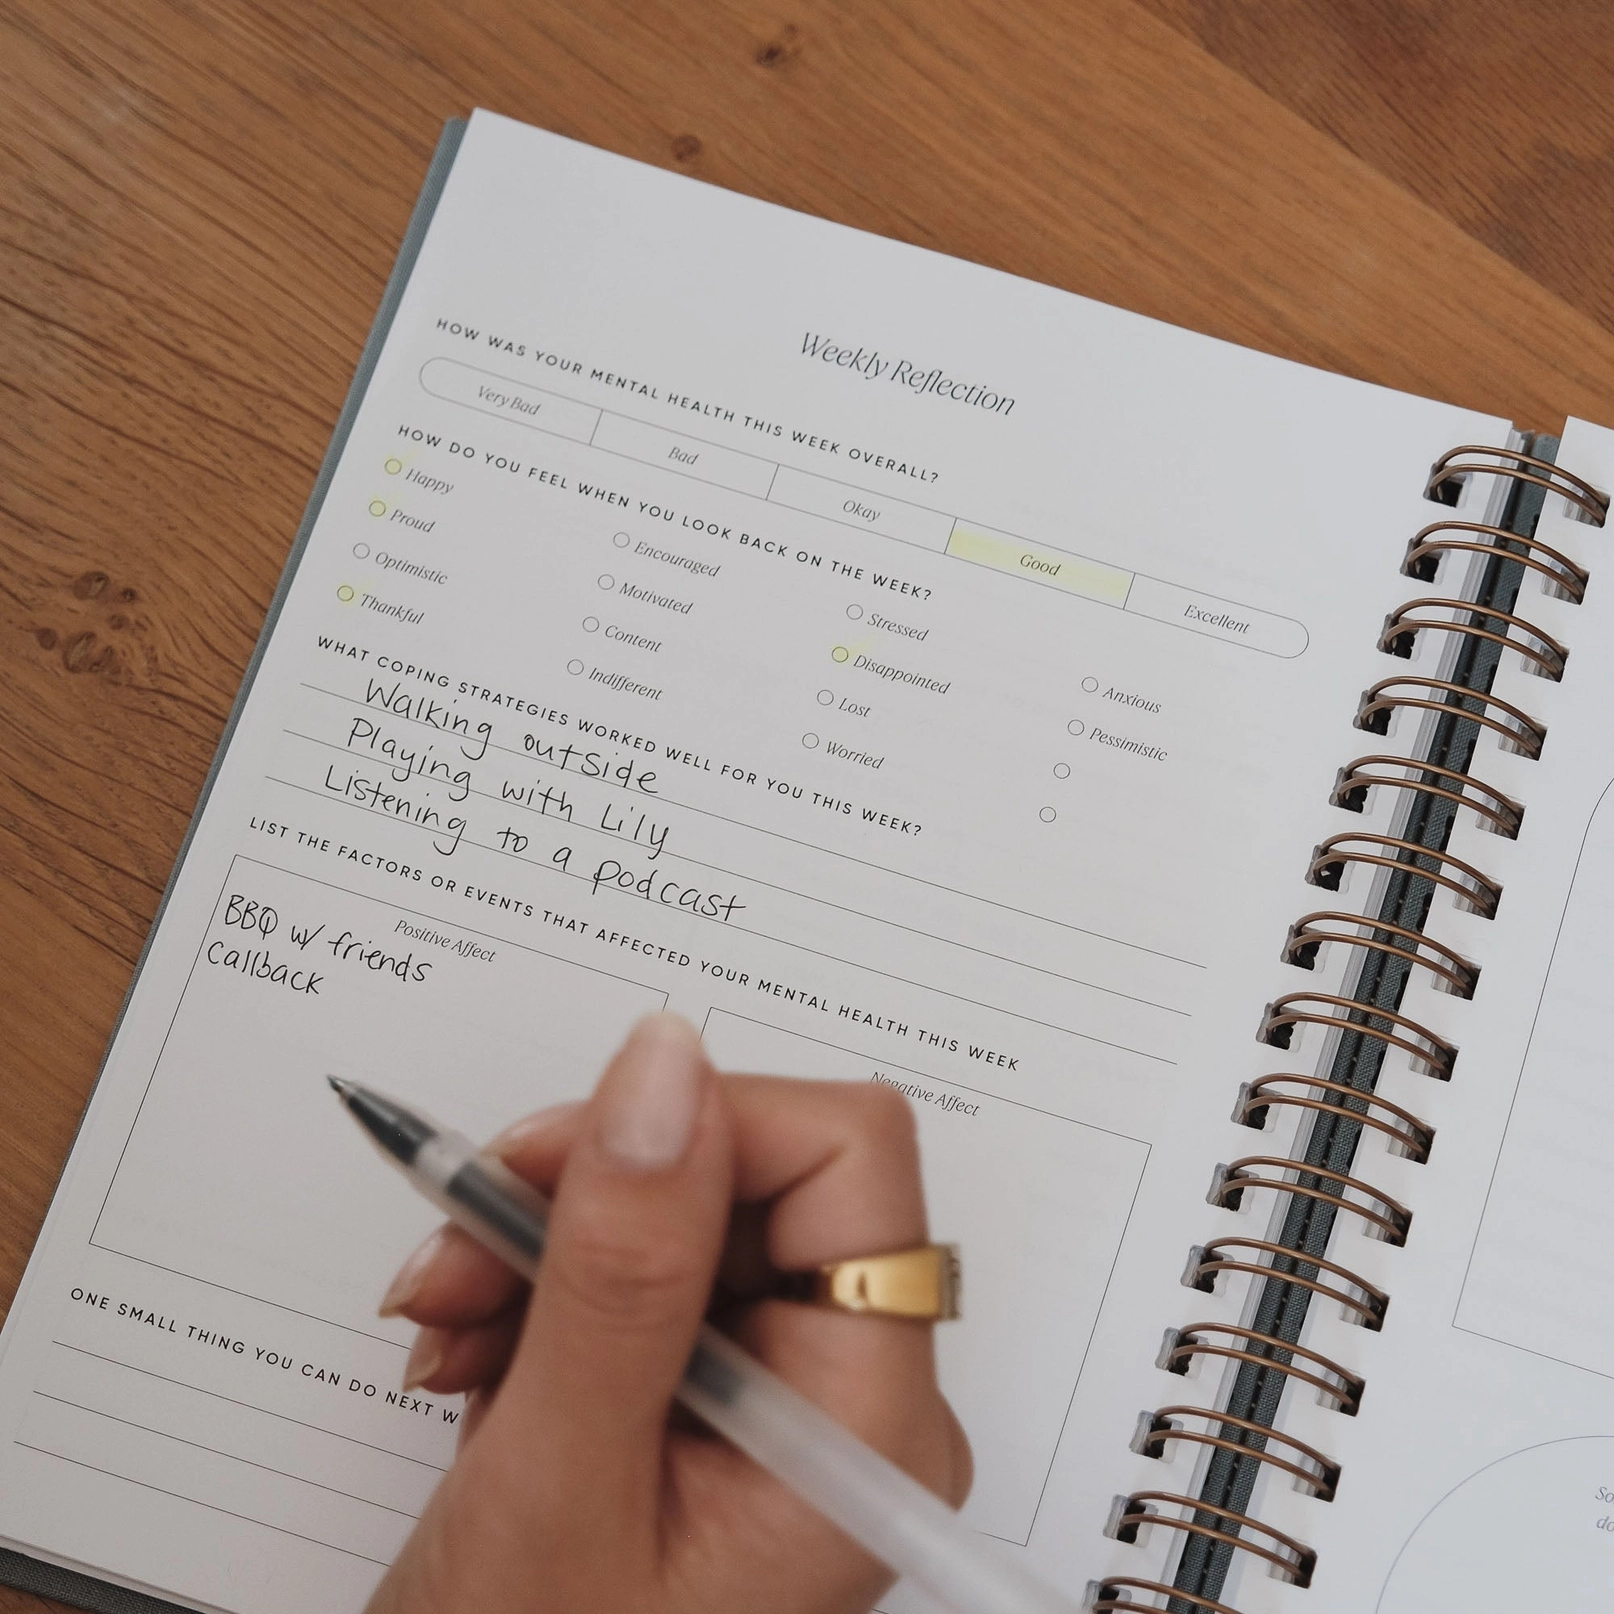 Weekly Reflection
HOW WAS YOUR MENTAL HEALTH THIS WEEK OVERALL?
Very Bad
Bad
Okay
Good
Excellent
HOW DO YOU FEEL WHEN YOU LOOK BACK ON THE WEEK?
Happy
Proud
Optimistic
Thankful
Encouraged
Motivated
Content
Indifferent
Stressed
Disappointed
Lost
Worried
Anxious
Pessimistic
WHAT COPING STRATEGIES WORKED WELL FOR YOU THIS WEEK?
Walking outside
Playing with Lily
Listening to a podcast
LIST THE FACTORS OR EVENTS THAT AFFECTED YOUR MENTAL HEALTH THIS WEEK
Positive Affect
BBQ w/ friends
Callback
Negative Affect
ONE SMALL THING YOU CAN DO NEXT